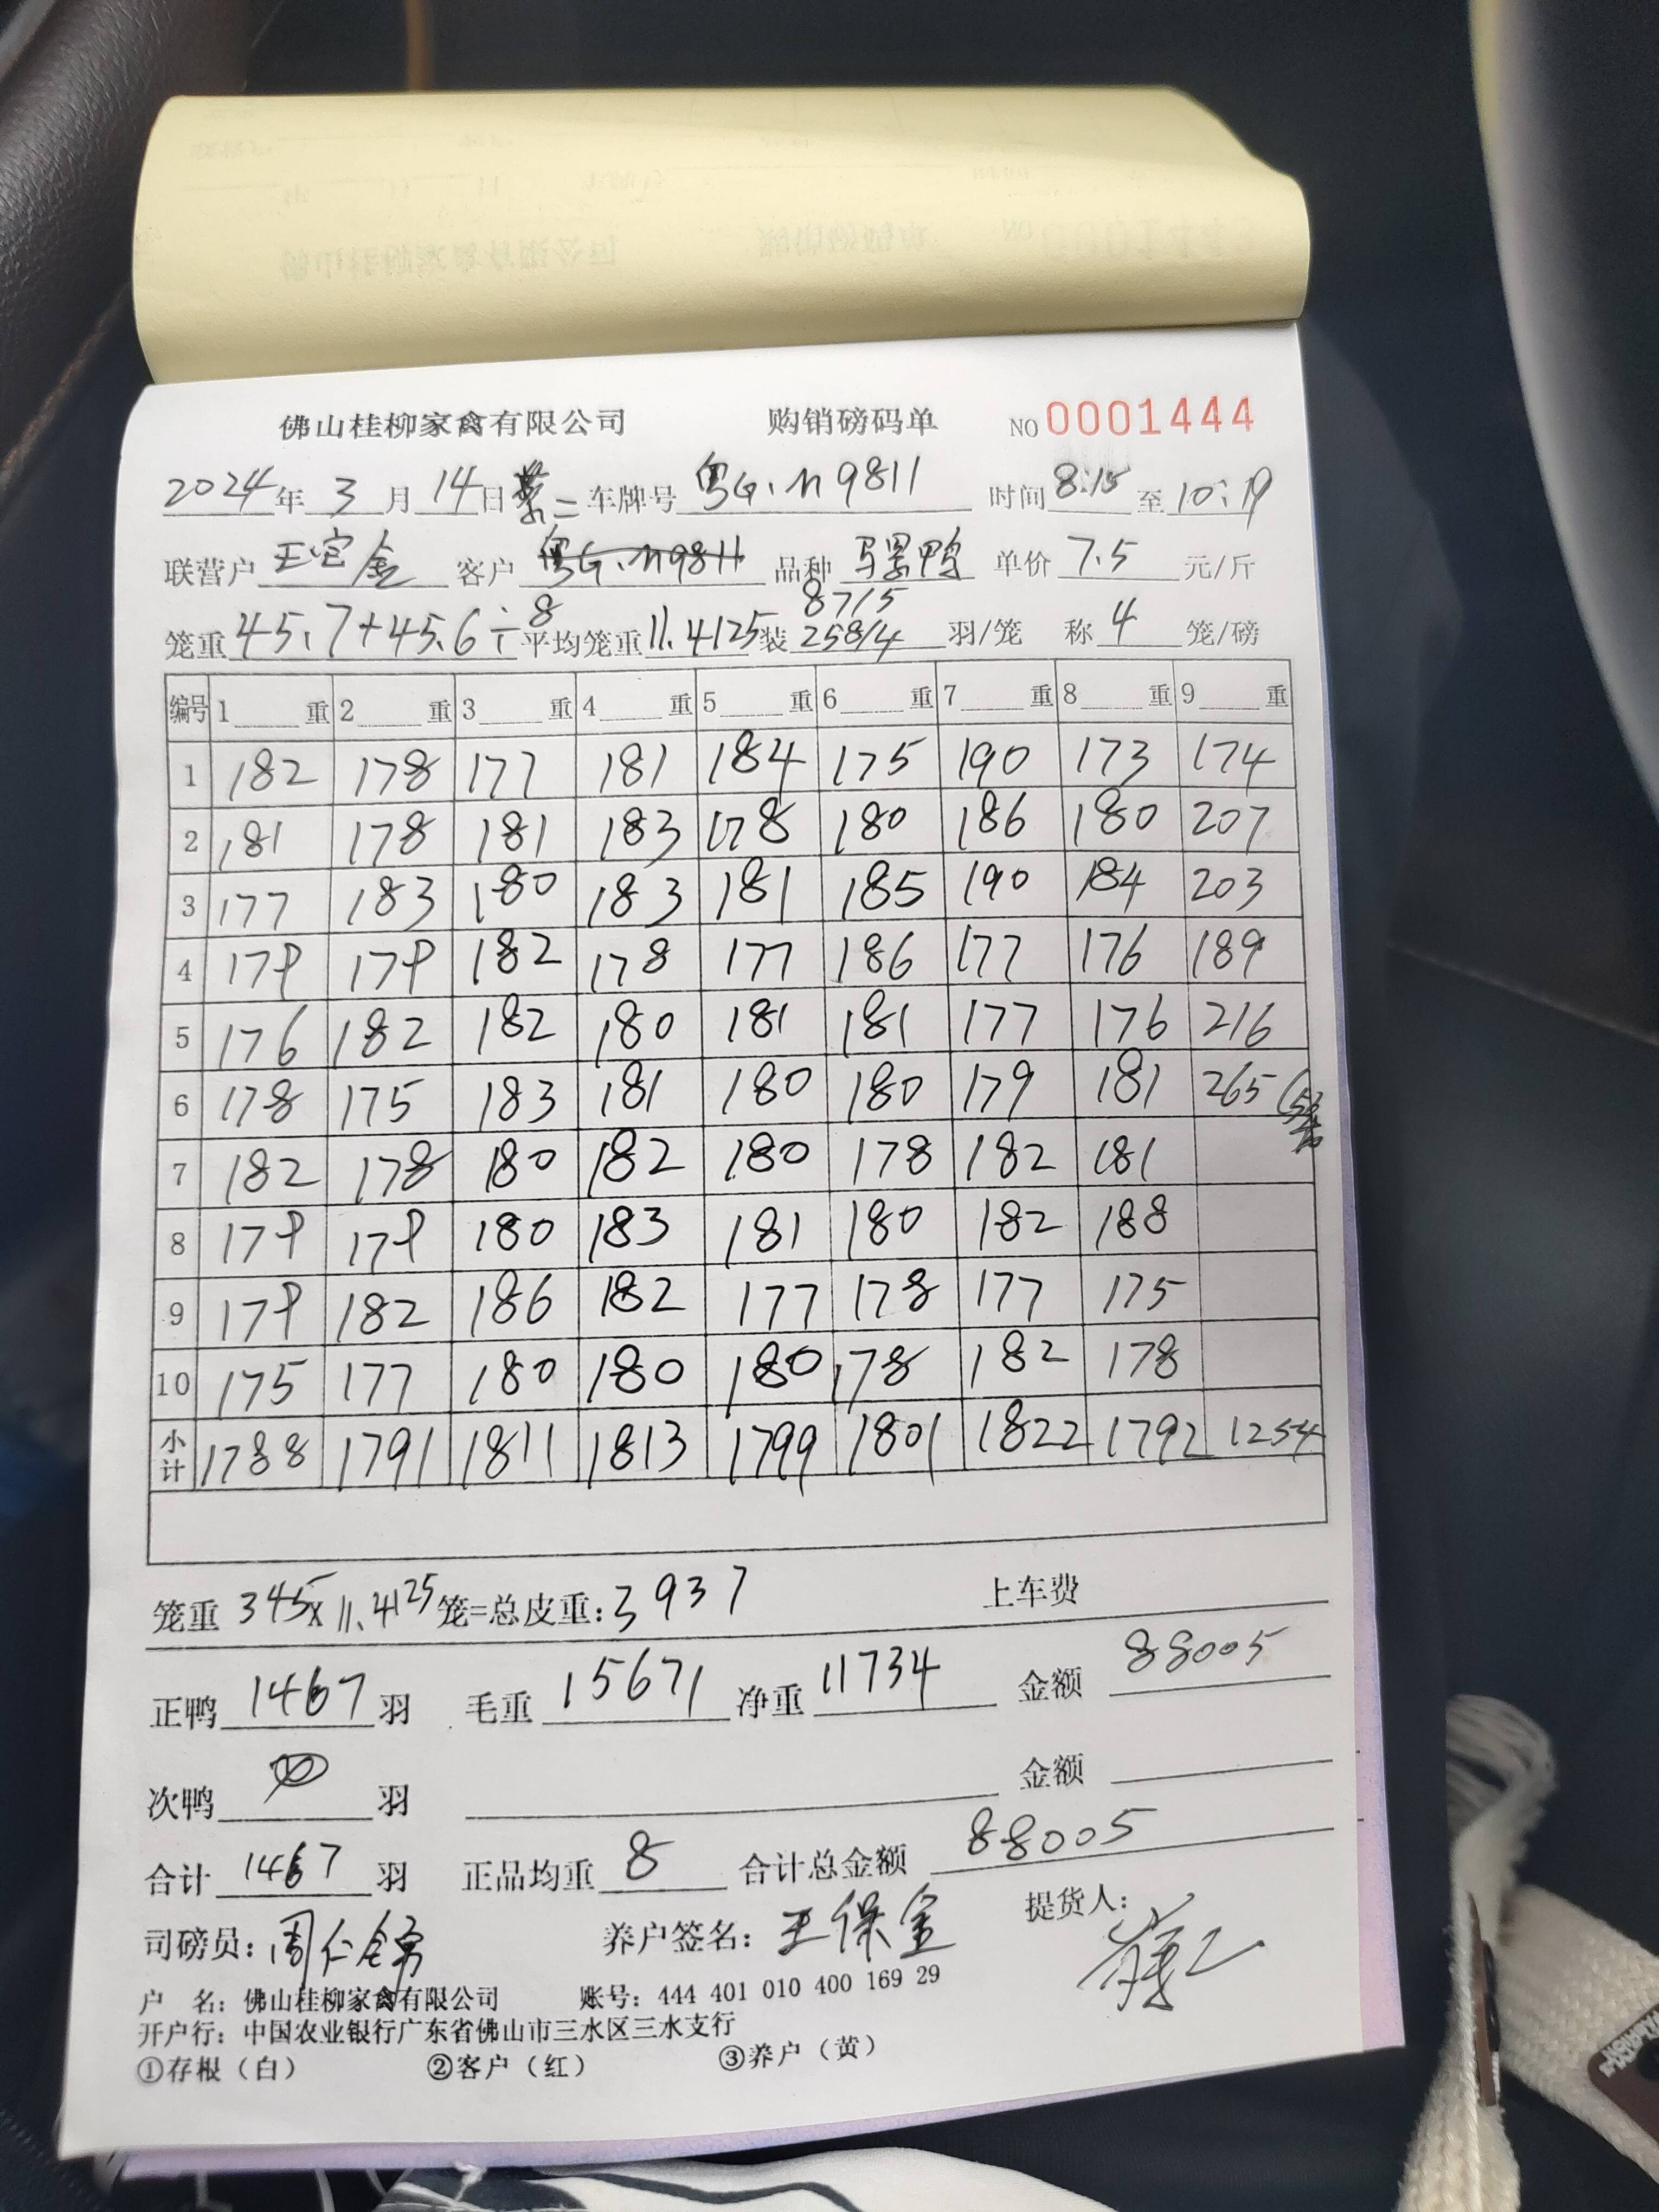 佛山桂柳家禽有限公司 购销磅码单 NO 0001444
2024年 3月 14日 车牌号 粤G.M9811 时间 8:15 至 10:19
联营户 王宝金 客户 粤G.M9811 品种 鸭 单价 7.5 元/斤
笼重 45.7+45.6÷8 平均笼重 11.4125 装 87/5 258/4 羽/笼 称 4 笼/磅
编号 1 重 2 重 3 重 4 重 5 重 6 重 7 重 8 重 9 重
1 182 178 177 181 184 175 190 173 174
2 181 178 181 183 178 180 186 180 207
3 177 183 180 183 181 185 190 184 203
4 179 179 182 178 177 186 177 176 189
5 176 182 182 180 181 181 177 176 216
6 178 175 183 181 180 180 179 181 265
7 182 178 180 182 180 178 182 181
8 179 179 180 183 181 180 182 188
9 179 182 186 182 177 178 177 175
10 175 177 180 180 180 178 182 178
小计 1788 1791 1811 1813 1799 1801 1822 1792 1254
笼重 345×11.4125 笼=总皮重：3937 上车费
正鸭 1467 羽 毛重 15671 净重 11734 金额 88005
次鸭 羽 金额
合计 1467 羽 正品均重 8 合计总金额 88005
司磅员：周仁锦 养户签名：王保金 提货人：
户 名：佛山桂柳家禽有限公司 账号：444 401 010 400 169 29
开户行：中国农业银行广东省佛山市三水区三水支行
①存根（白） ②客户（红） ③养户（黄）